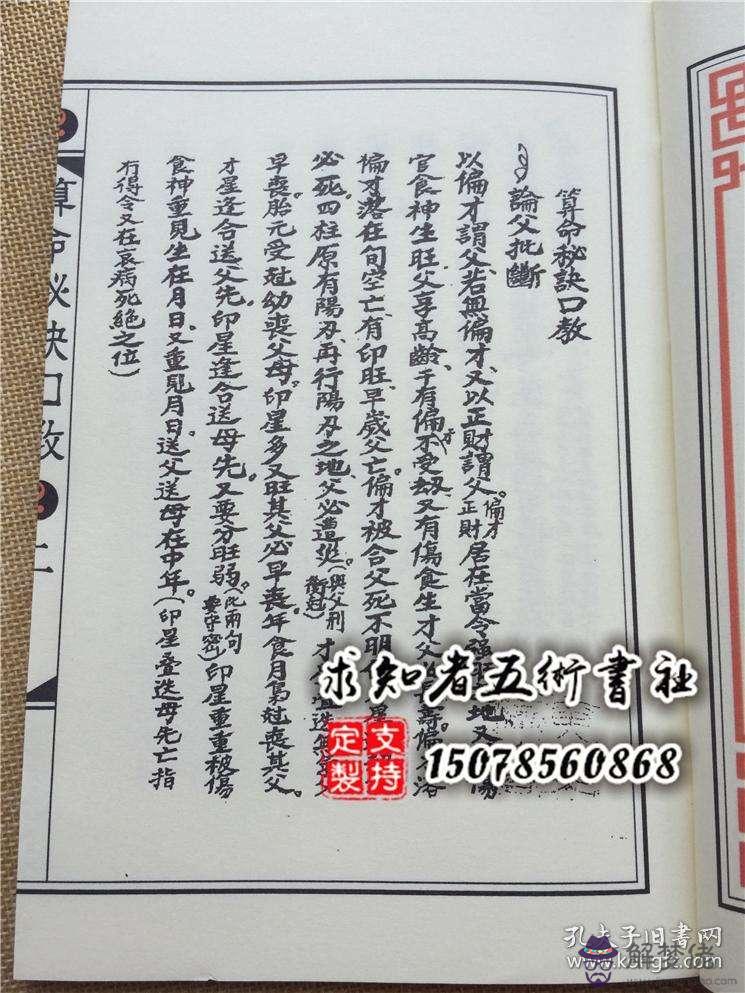 算命秘訣口教
論父批斷
以偏才謂父若無偏才、又以正財謂父。偏才正財居在當令強旺地又 傷
官食神生旺、父享高齡、干有偏才不受刼又有傷食生才父 壽偏 落
偏才落在旬空亡、有印旺、早歲父亡。偏才被合父死不明
必死。四柱原有陽刃、再行陽刃之地、父必遭凶(與父刑衝尅)才
早喪。胎元受尅幼喪父母。印星多又旺其父必早喪。年食月梟尅喪其父。
才星逢合送父先。印星逢合送母先。又要分旺弱。(此兩句要守密)印星重重被傷
食神重見生在月日、又重見月日。送父送母在中年。(印星疊迭母先亡指
冇得令又在衰病死絕之位)
算命秘訣口教
二
求知者五術書社
支持定製
15078560868
孔夫子旧書网
解梦佬